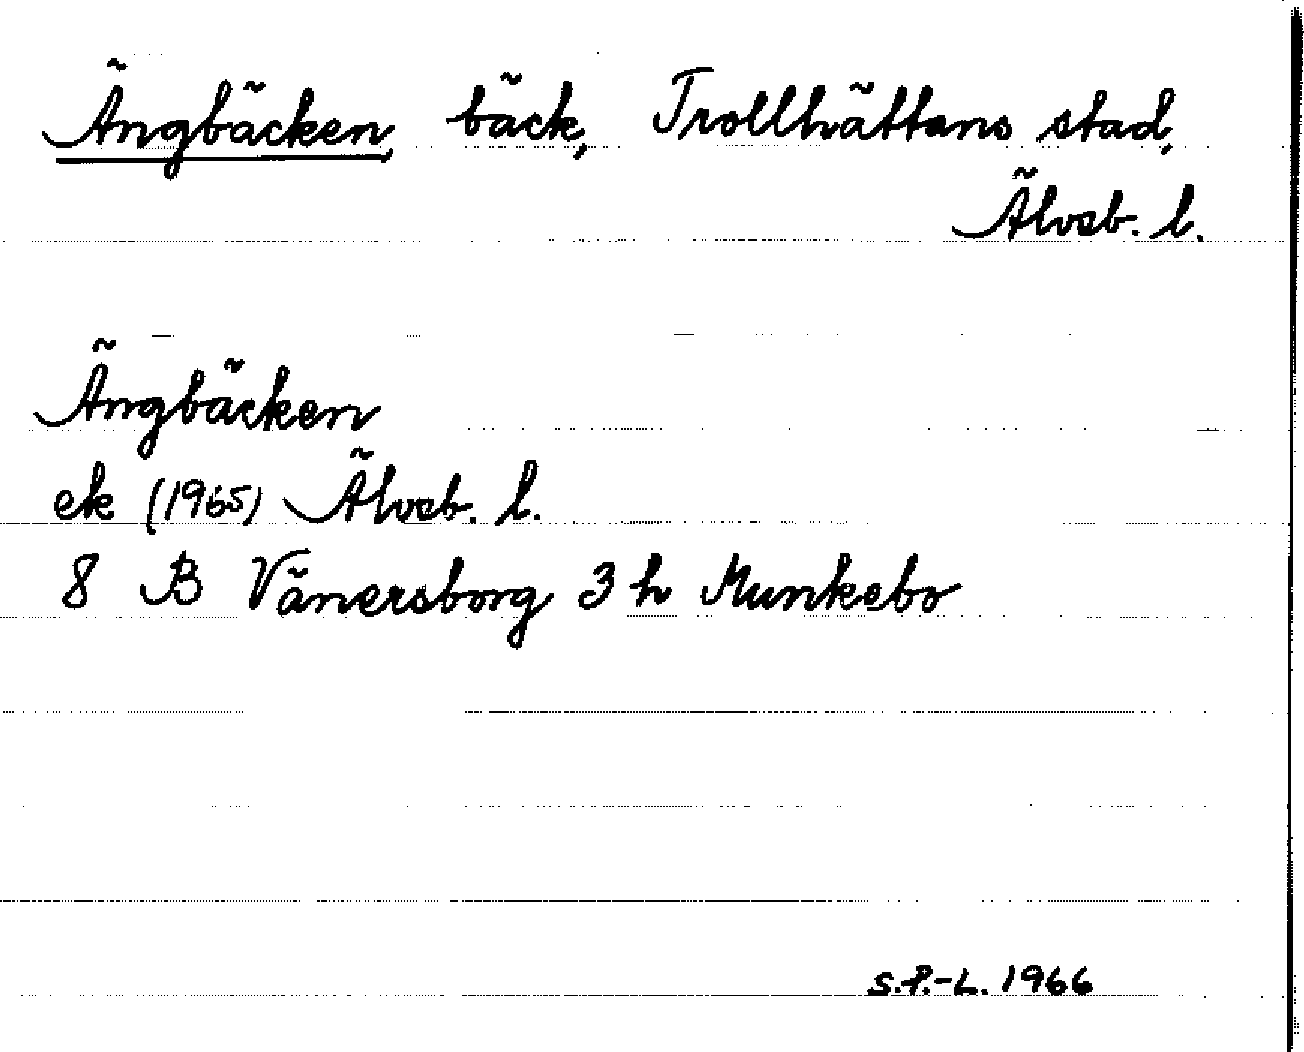 Ängbäcken, bäck, Trollhättans stad,
Älvsb. l.
Ängbäcken
ek (1965) Älvsb. l.
8 B Vänersborg 3 h Munkebo
S.P.-L. 1966